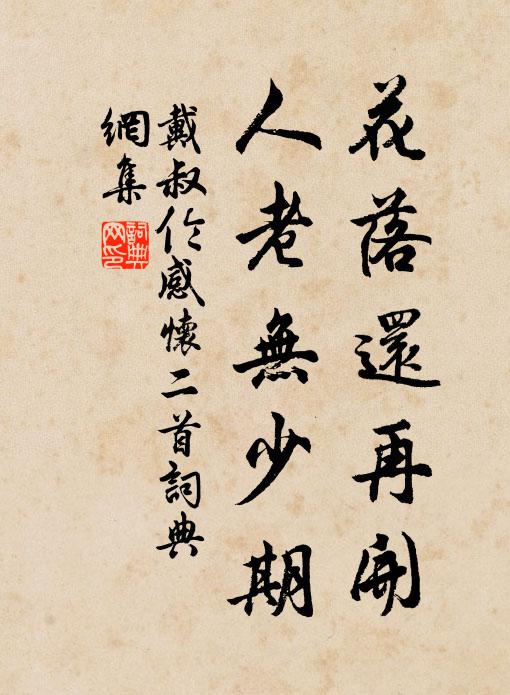 花落還再開
人老無少期
戴叔伦感懷二首詞典
網集
詞典
网印